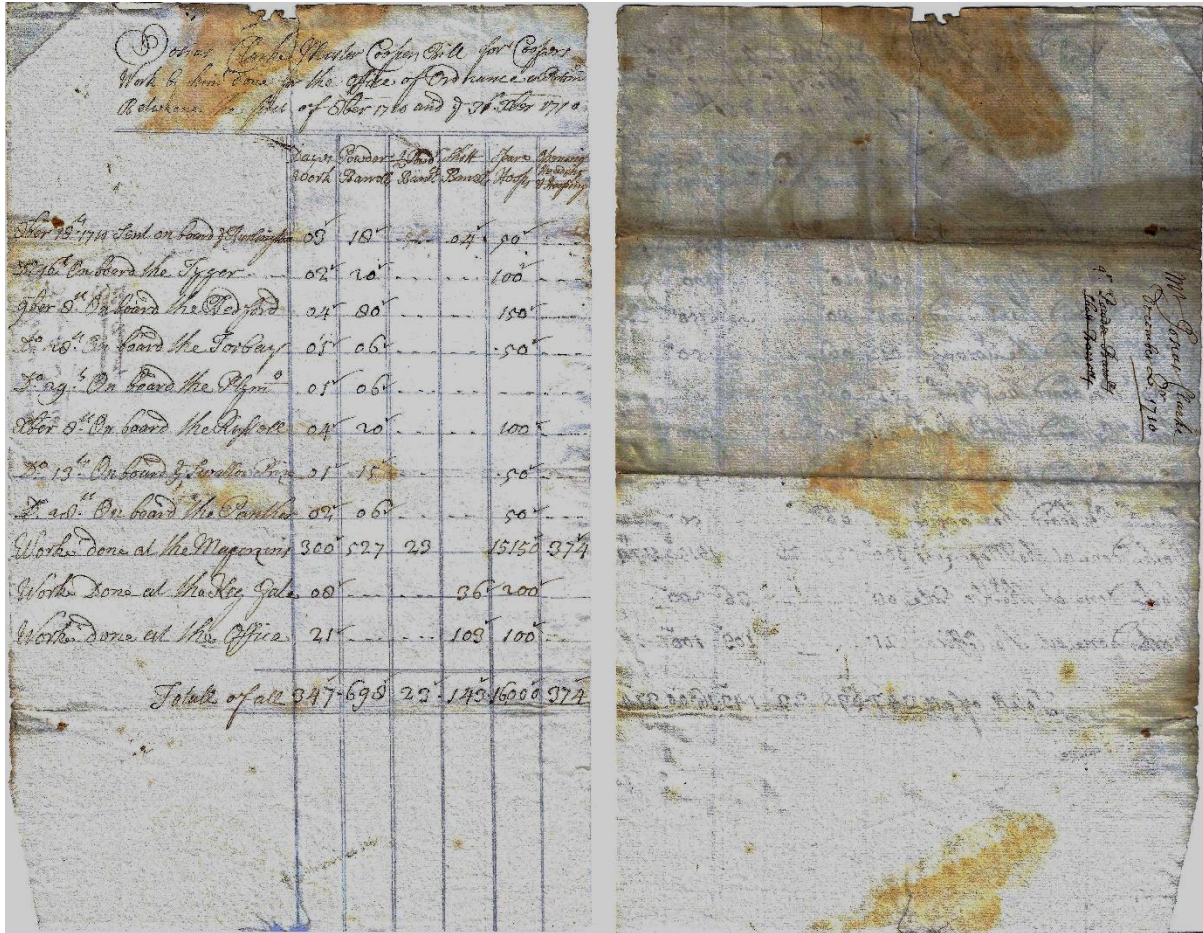 Josias Clarke Master Coopers Bill for Coopers
Work by him Done for the Office of Ordnance at
Betweene the first of 8ber 1710 and ye 31 Xber 1710
Dayes Work
Powder Barrell
Barrll
Shott Barrell
Spare Hoops
& Hooping
8ber 1710 Sent on board ye 03 18 04 50
Do 16th On board the Tyger 02 20 100
9ber 8th On board the Bedford 04 80 150
Do 28th On board the Torbay 01 06 50
Do 29th On board the Plymo 01 06
Xber 8th On board the 04 20 100
Do 13th On board ye Swallow Priz 01 15 50
Do 28th On board the Panther 02 06 50
Work done at the Magerein 300 527 23 15150 374
Work Done at the Key Gate 08 36 200
Work done at the Office 21 103 100
Totall of all 347 698 23 143 16000 374
Mr Josias Clarke
December Qr 1710